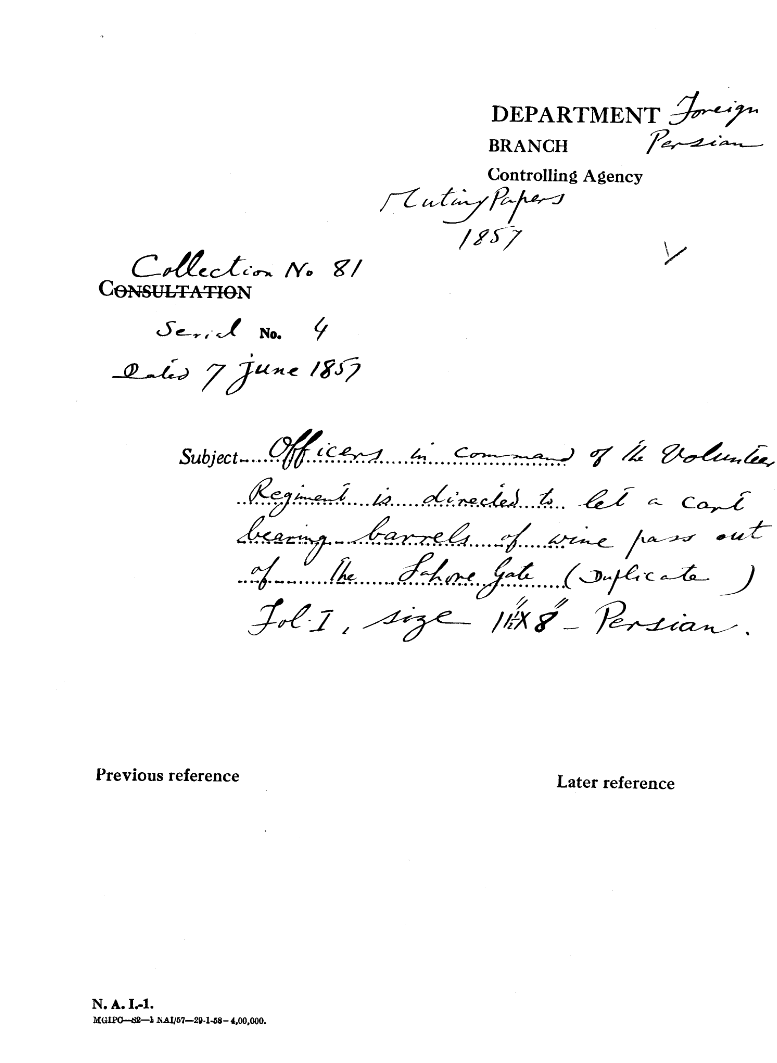 DEPARTMENT Foreign
BRANCH Persian
Controlling Agency
Mutiny Papers
1857
Collection No 81
CONSULTATION
Serial No. 4
Dated 7 June 1857
Subject Officers in command of the Volunteer
Regiment is directed to let a cart
bearing barrels of wine pass out
of the Lahore Gate (Duplicate)
Fol. I, size 11½" X 8" - Persian.
Previous reference
Later reference
N. A. I.-1.
MGIPC—S2—1 NAI/57—29-1-58—4,00,000.